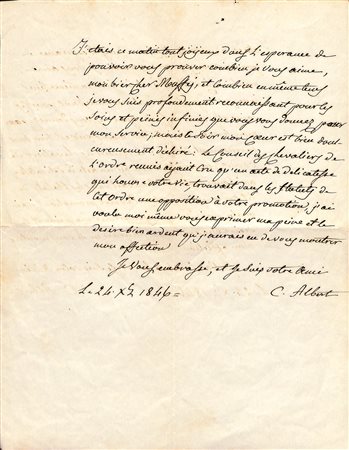 J'etais ce matin tout joyeux dans l'esperance de
pouvoir vous prouver combien je vous aime,
mon bien cher Mouffe; et combien en meme tems
je vous suis profondement reconnaissant pour les
soins et peines infinies que vous vous donnez pour
me servir; mais ce soir mon cœur est bien dou-
cureusement déchiré: le Conseil des chevaliers de
l'Ordre reunis ayant cru qu'un acte de delicatesse
qui honore votre vie, trouvait dans les Statuts de
cet Ordre une opposition à votre promotion; j'ai
voulu moi même vous exprimer ma peine et le
desir bien ardent que j'aurais eu de vous montrer
mon affection
Je vous embrasse, et je suis votre ami
Le 24 Xb 1846 = C. Albert